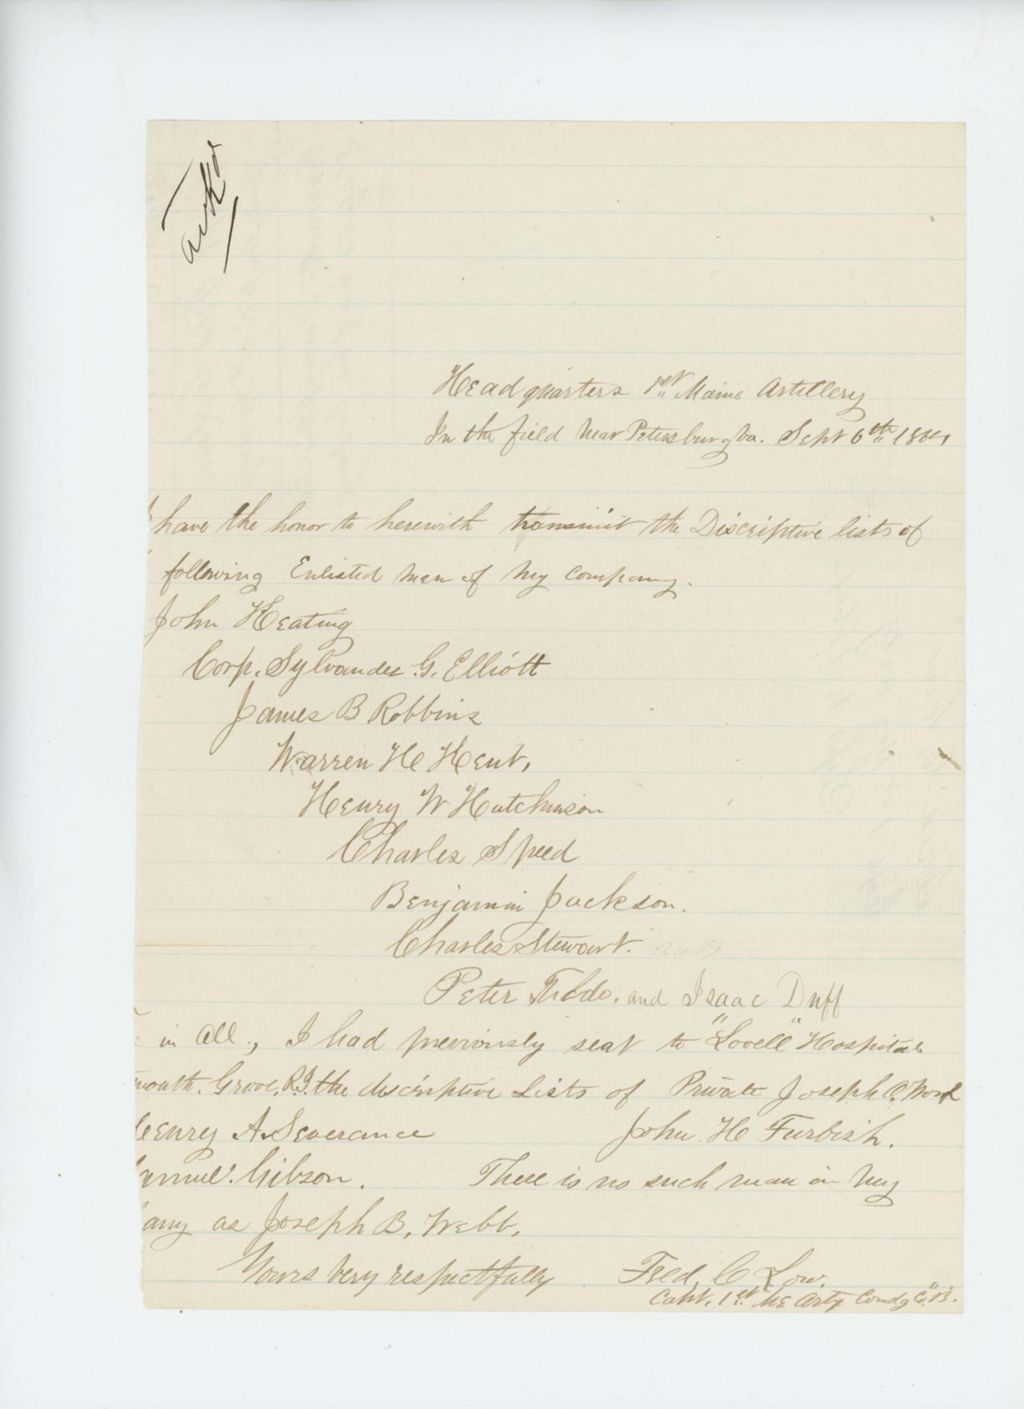 ackd
Headquarters 1st Maine Artillery
In the field Near Petersburg Va. Sept 6th 1864
I have the honor to herewith transmit the Discriptive lists of
following Enlisted men of my Company.
John Keating
Corp. Sylvander G. Elliott
James B Robbins
Warren H Kent,
Henry W Hutchinson
Charles Speed
Benjamin Jackson.
Charles Stewart.
Peter and Isaac Duff
in all, I had previously sent to "Lovell" Hospital
mouth. Grove, R.I. the discriptive Lists of Private Joseph O. Wood
Henry A. Severance John H Furbish.
Samuel. Gibson. There is no such man in my
any as Joseph B. Webb.
Yours very respectfully Fred. C Low.
Capt. 1st Me Arty Comdg Co "B".